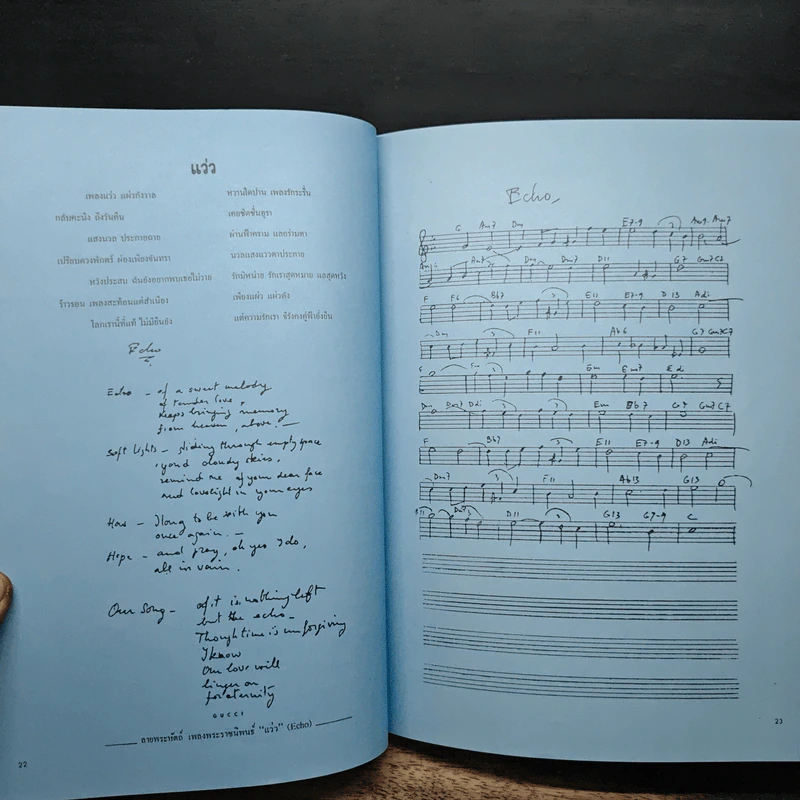 แว่ว
เพลงแว่ว แผ่วกังวาล หวานใดปาน เพลงรักระรื่น
กลับคะนึง ถึงวันคืน เคยชิดชื่นอุรา
แสงนวล ประกายฉาย ผ่านฟ้าคราม แลอร่ามตา
เปรียบดวงพักตร์ ผ่องเพียงจันทรา นวลแสงแวววตาประกาย
หวังประสบ ฉันยังอยากพบเธอไม่วาย รักมิหน่าย รักเราสุดหมาย แลสุดหวัง
ร่ำรอน เพลงสะท้อนแต่สำเนียง เพียงแผ่ว แว่วดัง
โลกเรานี้ที่แท้ ไม่มียืนยัง แต่ความรักเรา จีรังคงคู่ฟ้ายั่งยืน
Echo
Echo – of a sweet melody
of tender love,
keeps bringing memory
from heaven, above. –
Soft Lights – sliding through empty space
, yond cloudy skies,
remind me of your dear face
and lovelight in your eyes
How – I long to be with you
once again. –
Hope – and pray, oh yes I do,
all in vain.
Our Song – of it is nothing left
but the echo –
Though time is unforgiving
I know
Our love will
linger on
for eternity
GUCCI
ลายพระหัตถ์ เพลงพระราชนิพนธ์ "แว่ว" (Echo)
22
Echo,
G Am7 Dm E7-9 3 Am9 Am7
Am7 Dm Dm7 D11 G7 Gm7 C7
F F6 Bb7 3 E11 E7-9 D13 Adi
Dm 3 F11 Ab6 G7 Gm7C7
3 Em Em7 Edi
Dm Dm7 Ddi 3 Em Bb7 G7 Gm7 C7
F Bb7 3 E11 E7-9 D13 Adi
Dm7 3 F11 Ab13 G13
Dm7 D11 3 G13 G7-9 C
23